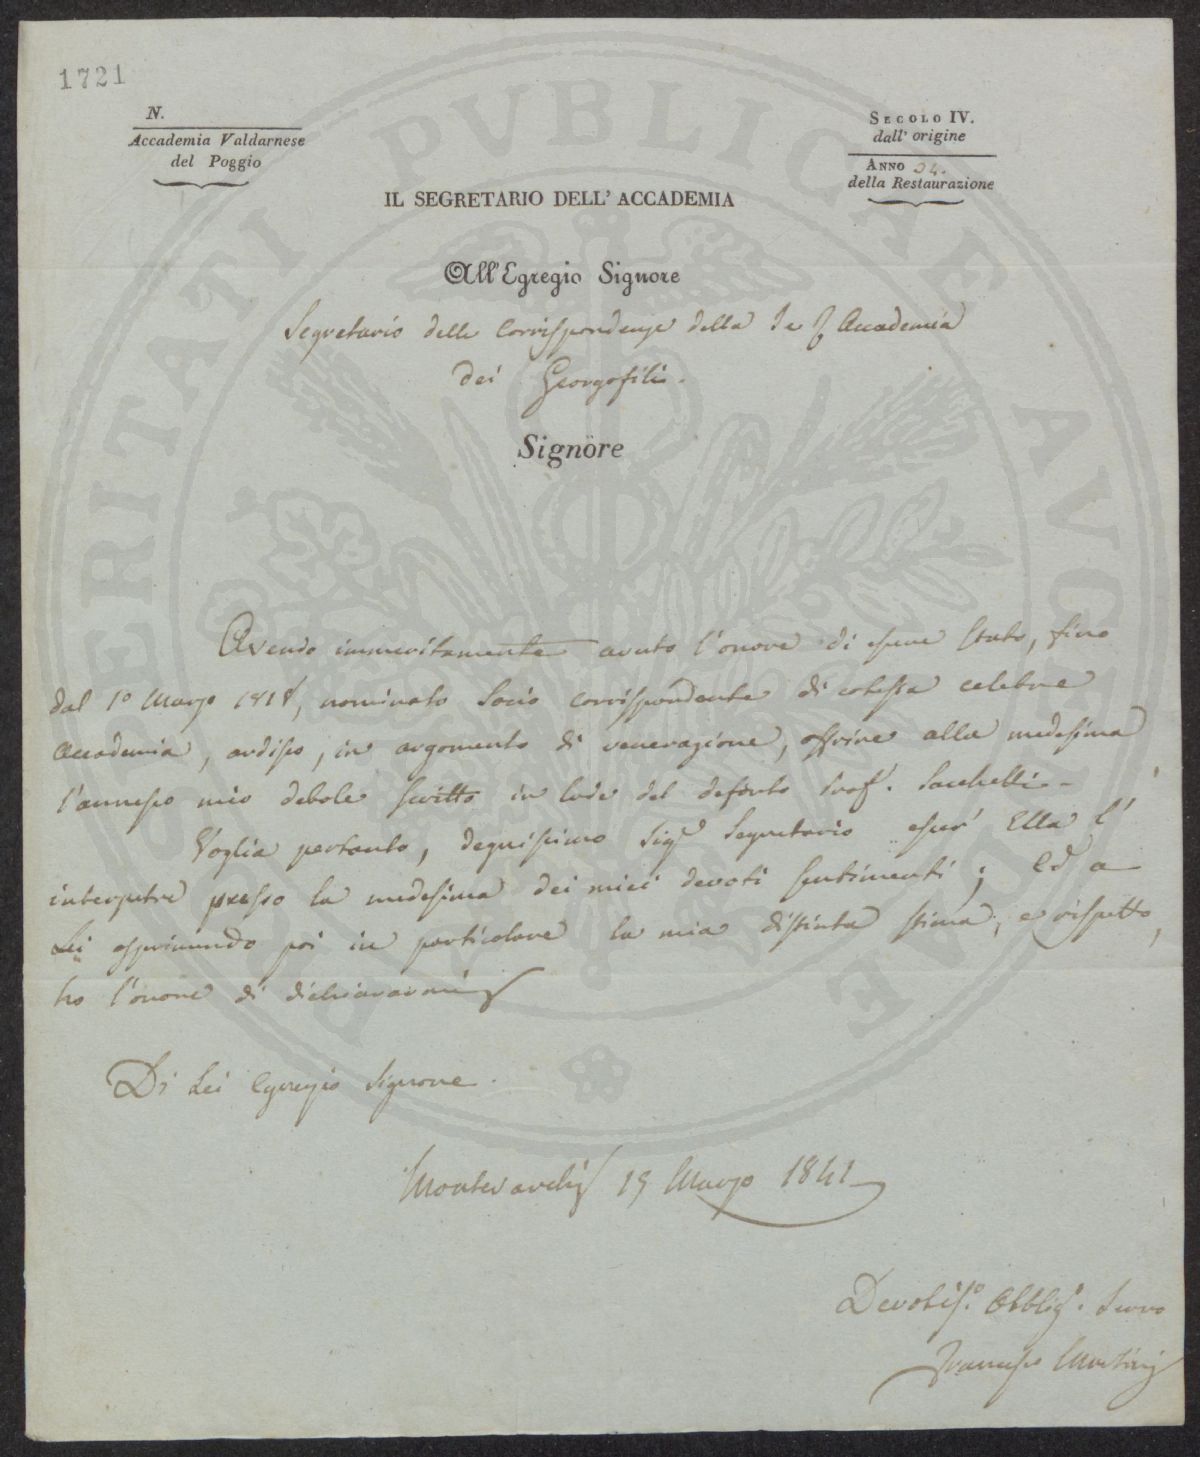 1721
N.
Accademia Valdarnese
del Poggio
SECOLO IV.
dall' origine
ANNO 34.
della Restaurazione
IL SEGRETARIO DELL' ACCADEMIA
All'Egregio Signore
Segretario delle Corrispondenze della I e R Accademia
dei Georgofili.
Signore
Avendo immeritamente avuto l'onore di essere stato, fino
dal 1º Marzo 1818, nominato Socio corrispondente di cotesta celebre
Accademia, ardisco, in argomento di venerazione, offrire alla medesima
l'annesso mio debole scritto in lode del defonto Prof. Sacchetti -
Voglia pertanto, degnissimo Sigre Segretario esser Ella l'
interpetre presso la medesima dei miei devoti sentimenti; Ed a
Lei esprimendo poi in particolare la mia distinta stima, e rispetto,
ho l'onore di dichiararmi
Di Lei Egregio Signore.
Montevarchi 15 Marzo 1841
Devotiss.º Obblig. Servo
Francesco Martini
PROSPERITATI PVBLICAE AVGENDAE